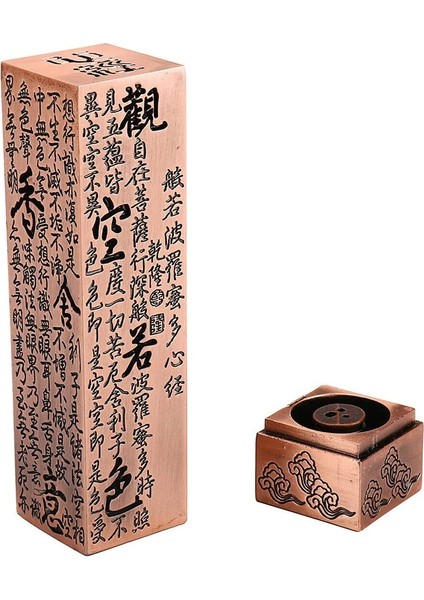 心經
般若波羅蜜多心経
乾隆
觀自在菩薩行深般若波羅蜜多時照
見五蘊皆空度一切苦厄舍利子色不
異空空不異色色即是空空即是色受
想行識亦復如是舍利子是諸法空相
不生不滅不垢不淨不增不減是故空
中無色無受想行識無眼耳鼻舌身意
無色聲香味觸法無眼界乃至無意識
界無無明亦無無明盡乃至無老死亦